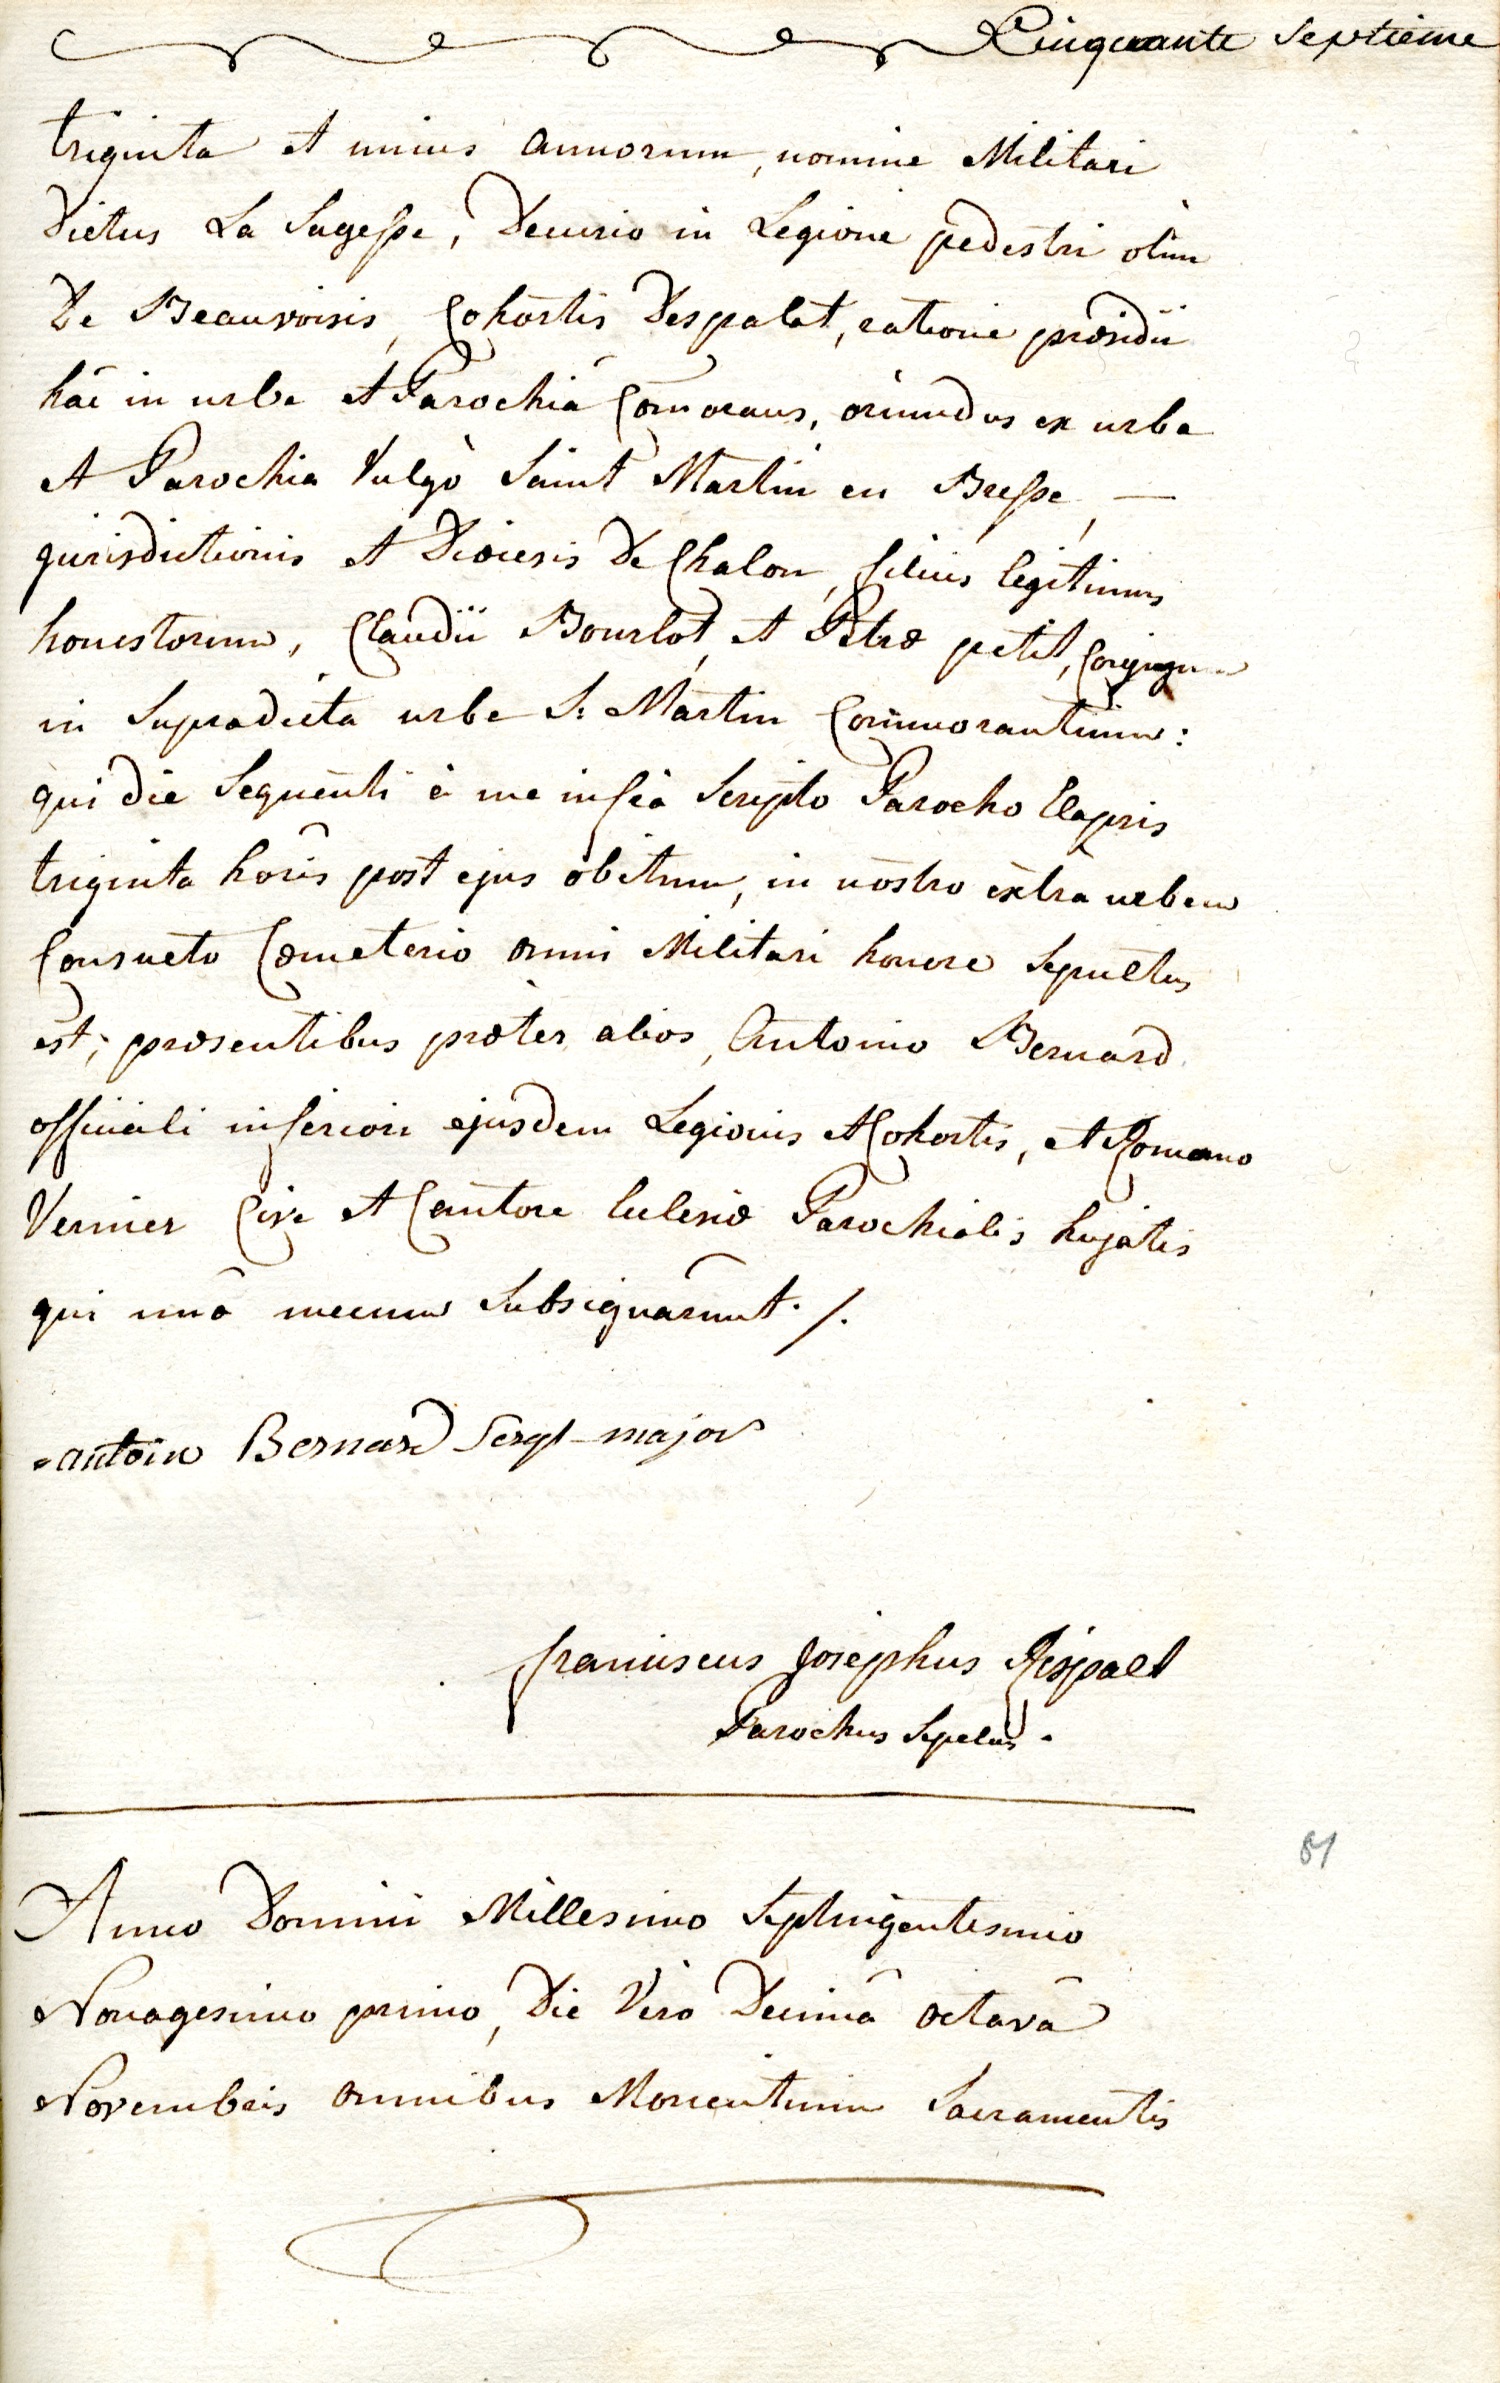 Cinquante Septieme
triginta et unius annorum, nomine Militari
dictus La Sagesse, Decurio in Legione pedestri olim
De Beauvoisis, Cohortis Despalat, ratione præsidii
hâc in urbe et Parochiâ Comorans, oriundus ex urbe
et Parochia Vulgò Saint Martin en Bresse, —
jurisdictionis et Dioicesis De Chalon, filius legitimus
honestorum, Claudii Bourlot, et Petræ petit, Conjugum
in Supradicta urbe S: Martin Commorantium:
qui die Sequenti à me infrà Scripto Parocho Elapsis
triginta horis post ejus obitum, in nostro extrà urbem
Consueto Cœmeterio omni Militari honore Sepultus
est; præsentibus præter alios, Antonio Bernard
officiali inferiori ejusdem Legionis et Cohortis, et Romano
Vernier Cive et Cantore Ecclesiæ Parochialis hujatis
qui unà mecum Subsignarunt. /.
antoin Bernard Sergt-major
franciscus Josephus Rispalt
Parochus Sepeliens.
81
Anno Domini Millesimo Septingentesimo
Nonagesimo primo, Die Vero Decimâ octavâ
Novembris omnibus Morientium Sacramentis